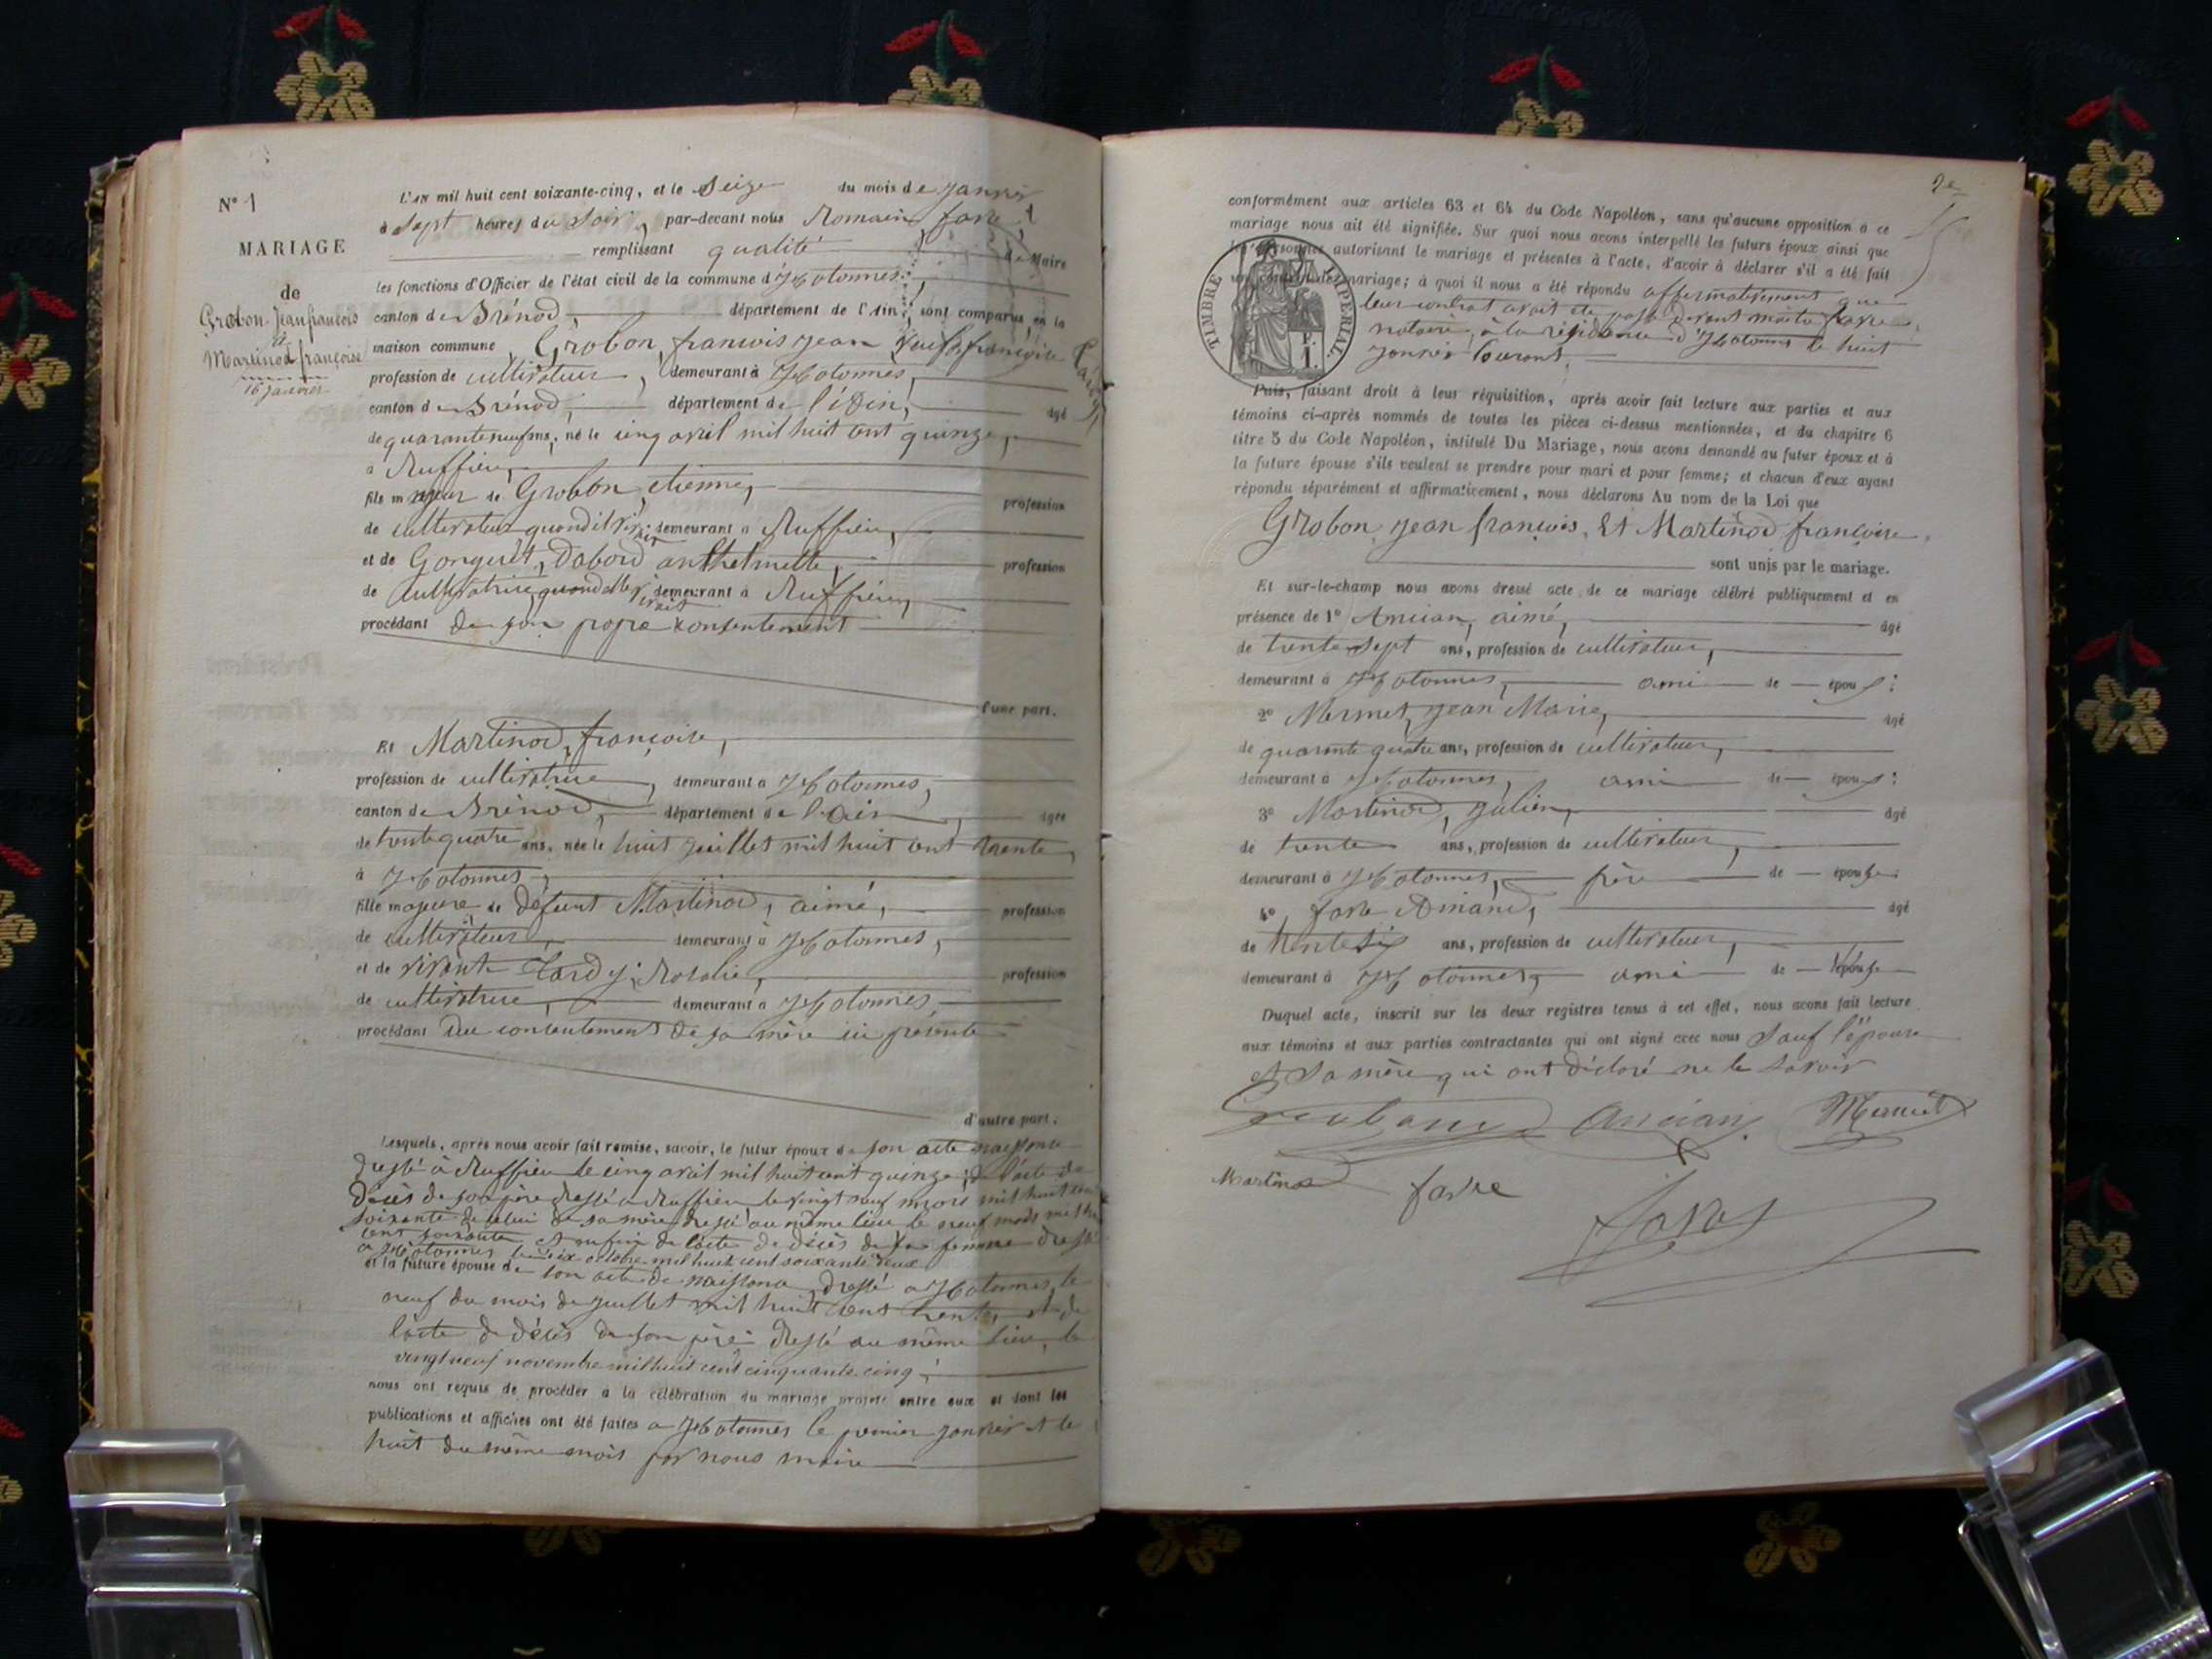 N° 1
MARIAGE
de
Grobon Jean françois
à
Martinod françoise
16 janvier
L'AN mil huit cent soixante-cinq, et le Seize du mois de janvier
à Sept heures du Soir, par-devant nous Romain favre
remplissant qualité de Maire
les fonctions d'Officier de l'état civil de la commune d'Hotonnes,
canton de Brénod, département de l'Ain, sont comparus en la
maison commune Grobon, francois jean veuf de françoise
profession de cultivateur, demeurant à Hotonnes,
canton de Brénod, département de l'Ain, âgé
de quarante neuf ans, né le cinq avril mil huit cent quinze,
à Ruffieu,
fils majeur de Grobon, etienne, profession
de cultivateur quand il vivait demeurant à Ruffieu,
et de Gonguet, Dabord anthelmette, profession
de cultivatrice quand elle vivait demeurant à Ruffieu,
procédant de son propre consentement
d'une part.
Et Martinod, françoise,
profession de cultivatrice, demeurant à Hotonnes,
canton de Brénod, département de l'Ain, âgée
de trente quatre ans, née le huit juillet mil huit cent trente,
à Hotonnes,
fille majeure de défunt Martinod, aimé, profession
de cultivateur, demeurant à Hotonnes,
et de vivante Tardy, Rosalie, profession
de cultivatrice, demeurant à Hotonnes,
procédant du consentement de sa mère ici présente
d'autre part.
Lesquels, après nous avoir fait remise, savoir, le futur époux de son acte naissance
dressé à Ruffieu le cinq avril mil huit cent quinze, de l'acte de
décès de son père dressé à Ruffieu le vingt neuf mars mil huit cent
soixante de celui de sa mère dressé au même lieu le neuf mars mil huit
cent soixante et enfin de l'acte de décès de sa femme dressé
à Hotonnes le dix octobre mil huit cent soixante deux
et la future épouse de son acte de naissance dressé à Hotonnes, le
neuf du mois de juillet mil huit cent trente, et de
l'acte de décès de son père dressé au même lieu, le
vingt neuf novembre mil huit cent cinquante cinq;
nous ont requis de procéder à la célébration du mariage projeté entre eux et dont les
publications et affiches ont été faites à Hotonnes le premier janvier et le
huit du même mois par nous maire
conformément aux articles 63 et 64 du Code Napoléon, sans qu'aucune opposition à ce
mariage nous ait été signifiée. Sur quoi nous avons interpellé les futurs époux ainsi que
les personnes autorisant le mariage et présentes à l'acte, d'avoir à déclarer s'il a été fait
un contrat de mariage; à quoi il nous a été répondu affirmativement que
leur contrat avait été passé devant maitre favre
notaire, à la résidence d'Hotonnes le huit
janvier courant.
TIMBRE IMPERIAL.
Puis, faisant droit à leur réquisition, après avoir fait lecture aux parties et aux
témoins ci-après nommés de toutes les pièces ci-dessus mentionnées, et du chapitre 6
titre 5 du Code Napoléon, intitulé Du Mariage, nous avons demandé au futur époux et à
la future épouse s'ils veulent se prendre pour mari et pour femme; et chacun d'eux ayant
répondu séparément et affirmativement, nous déclarons Au nom de la Loi que
Grobon, jean françois, Et Martinod françoise,
sont unis par le mariage.
Et sur-le-champ nous avons dressé acte de ce mariage célébré publiquement et en
présence de 1° Ancian, aimé, âgé
de trente sept ans, profession de cultivateur,
demeurant à Hotonnes, ami de époux;
2° Mermet, jean Marie, âgé
de quarante quatre ans, profession de cultivateur,
demeurant à Hotonnes, ami de époux;
3° Martinod, julien, âgé
de trente ans, profession de cultivateur,
demeurant à Hotonnes, frère de épouse;
4° favre Amand, âgé
de trente six ans, profession de cultivateur,
demeurant à Hotonnes, ami de l'épouse
Duquel acte, inscrit sur les deux registres tenus à cet effet, nous avons fait lecture
aux témoins et aux parties contractantes qui ont signé avec nous Sauf l'épouse
et Sa mère qui ont déclaré ne le savoir
Ancian Mermet
Martinod favre
favre